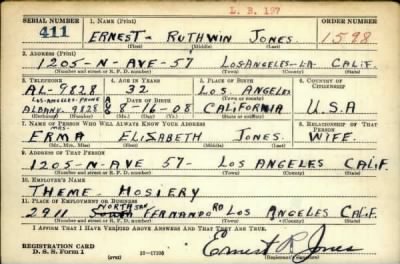 L. B. 197
SERIAL NUMBER 1. NAME (Print) ORDER NUMBER
411 ERNEST - RUTHWIN JONES 1598
(First) (Middle) (Last)
2. ADDRESS (Print)
1205-N-AVE-57 LOS-ANGELES-LA CALIF.
(Number and street or R. F. D. number) (Town) (County) (State)
3. TELEPHONE 4. AGE IN YEARS 5. PLACE OF BIRTH 6. COUNTRY OF CITIZENSHIP
AL-9828 32 LOS ANGELES
LOS-ANGELES-PHONE DATE OF BIRTH (Town or county)
ALBANY 9828 8-16-08 CALIFORNIA U.S.A
(Exchange) (Number) (Mo.) (Day) (Yr.) (State or country)
7. NAME OF PERSON WHO WILL ALWAYS KNOW YOUR ADDRESS 8. RELATIONSHIP OF THAT PERSON
MRS-
ERMA ELIZABETH JONES WIFE.
(Mr., Mrs., Miss) (First) (Middle) (Last)
9. ADDRESS OF THAT PERSON
1205-N-AVE 57- LOS ANGELES CALIF.
(Number and street or R. F. D. number) (Town) (County) (State)
10. EMPLOYER'S NAME
THEME-HOSIERY
11. PLACE OF EMPLOYMENT OR BUSINESS
2911 NORTH SAN FERNANDO RD LOS ANGELES CALIF.
(Number and street or R. F. D. number) (Town) (County) (State)
I AFFIRM THAT I HAVE VERIFIED ABOVE ANSWERS AND THAT THEY ARE TRUE.
REGISTRATION CARD
D. S. S. Form 1 (over) 16-17105 Ernest R. Jones
(Registrant's signature)